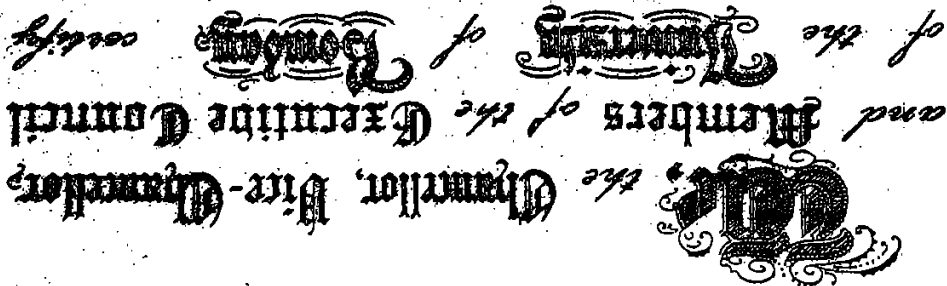 We, the Chancellor, Vice-Chancellor,
and Members of the Executive Council
of the University of Bombay, certify